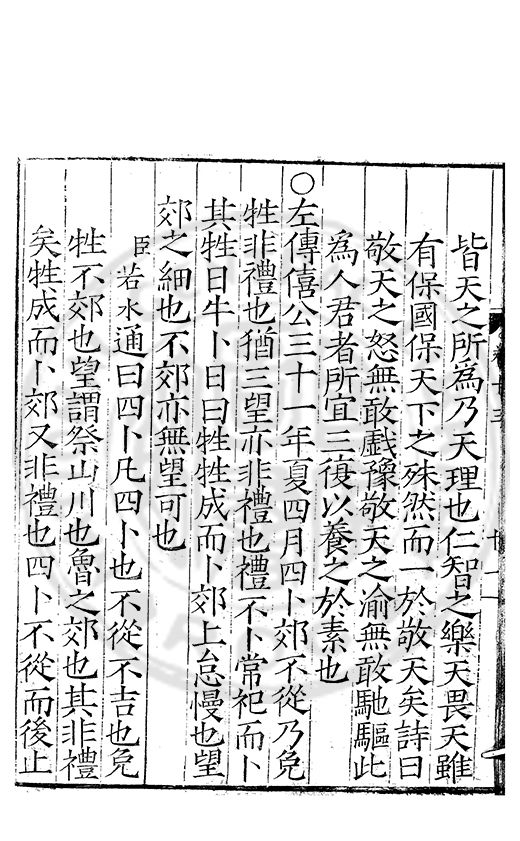 皆天之所為乃天理也仁智之樂天畏天雖
有保國保天下之殊然而一於敬天矣詩曰
敬天之怒無敢戲豫敬天之渝無敢馳驅此
為人君者所宜三復以養之於素也
○左傳僖公三十一年夏四月四卜郊不從乃免
牲非禮也猶三望亦非禮也禮不卜常祀而卜
其牲日牛卜日曰牲牲成而卜郊上怠慢也望
郊之細也不郊亦無望可也
臣若水通曰四卜凡四卜也不從不吉也免
牲不郊也望謂祭山川也魯之郊也其非禮
矣牲成而卜郊又非禮也四卜不從而後止